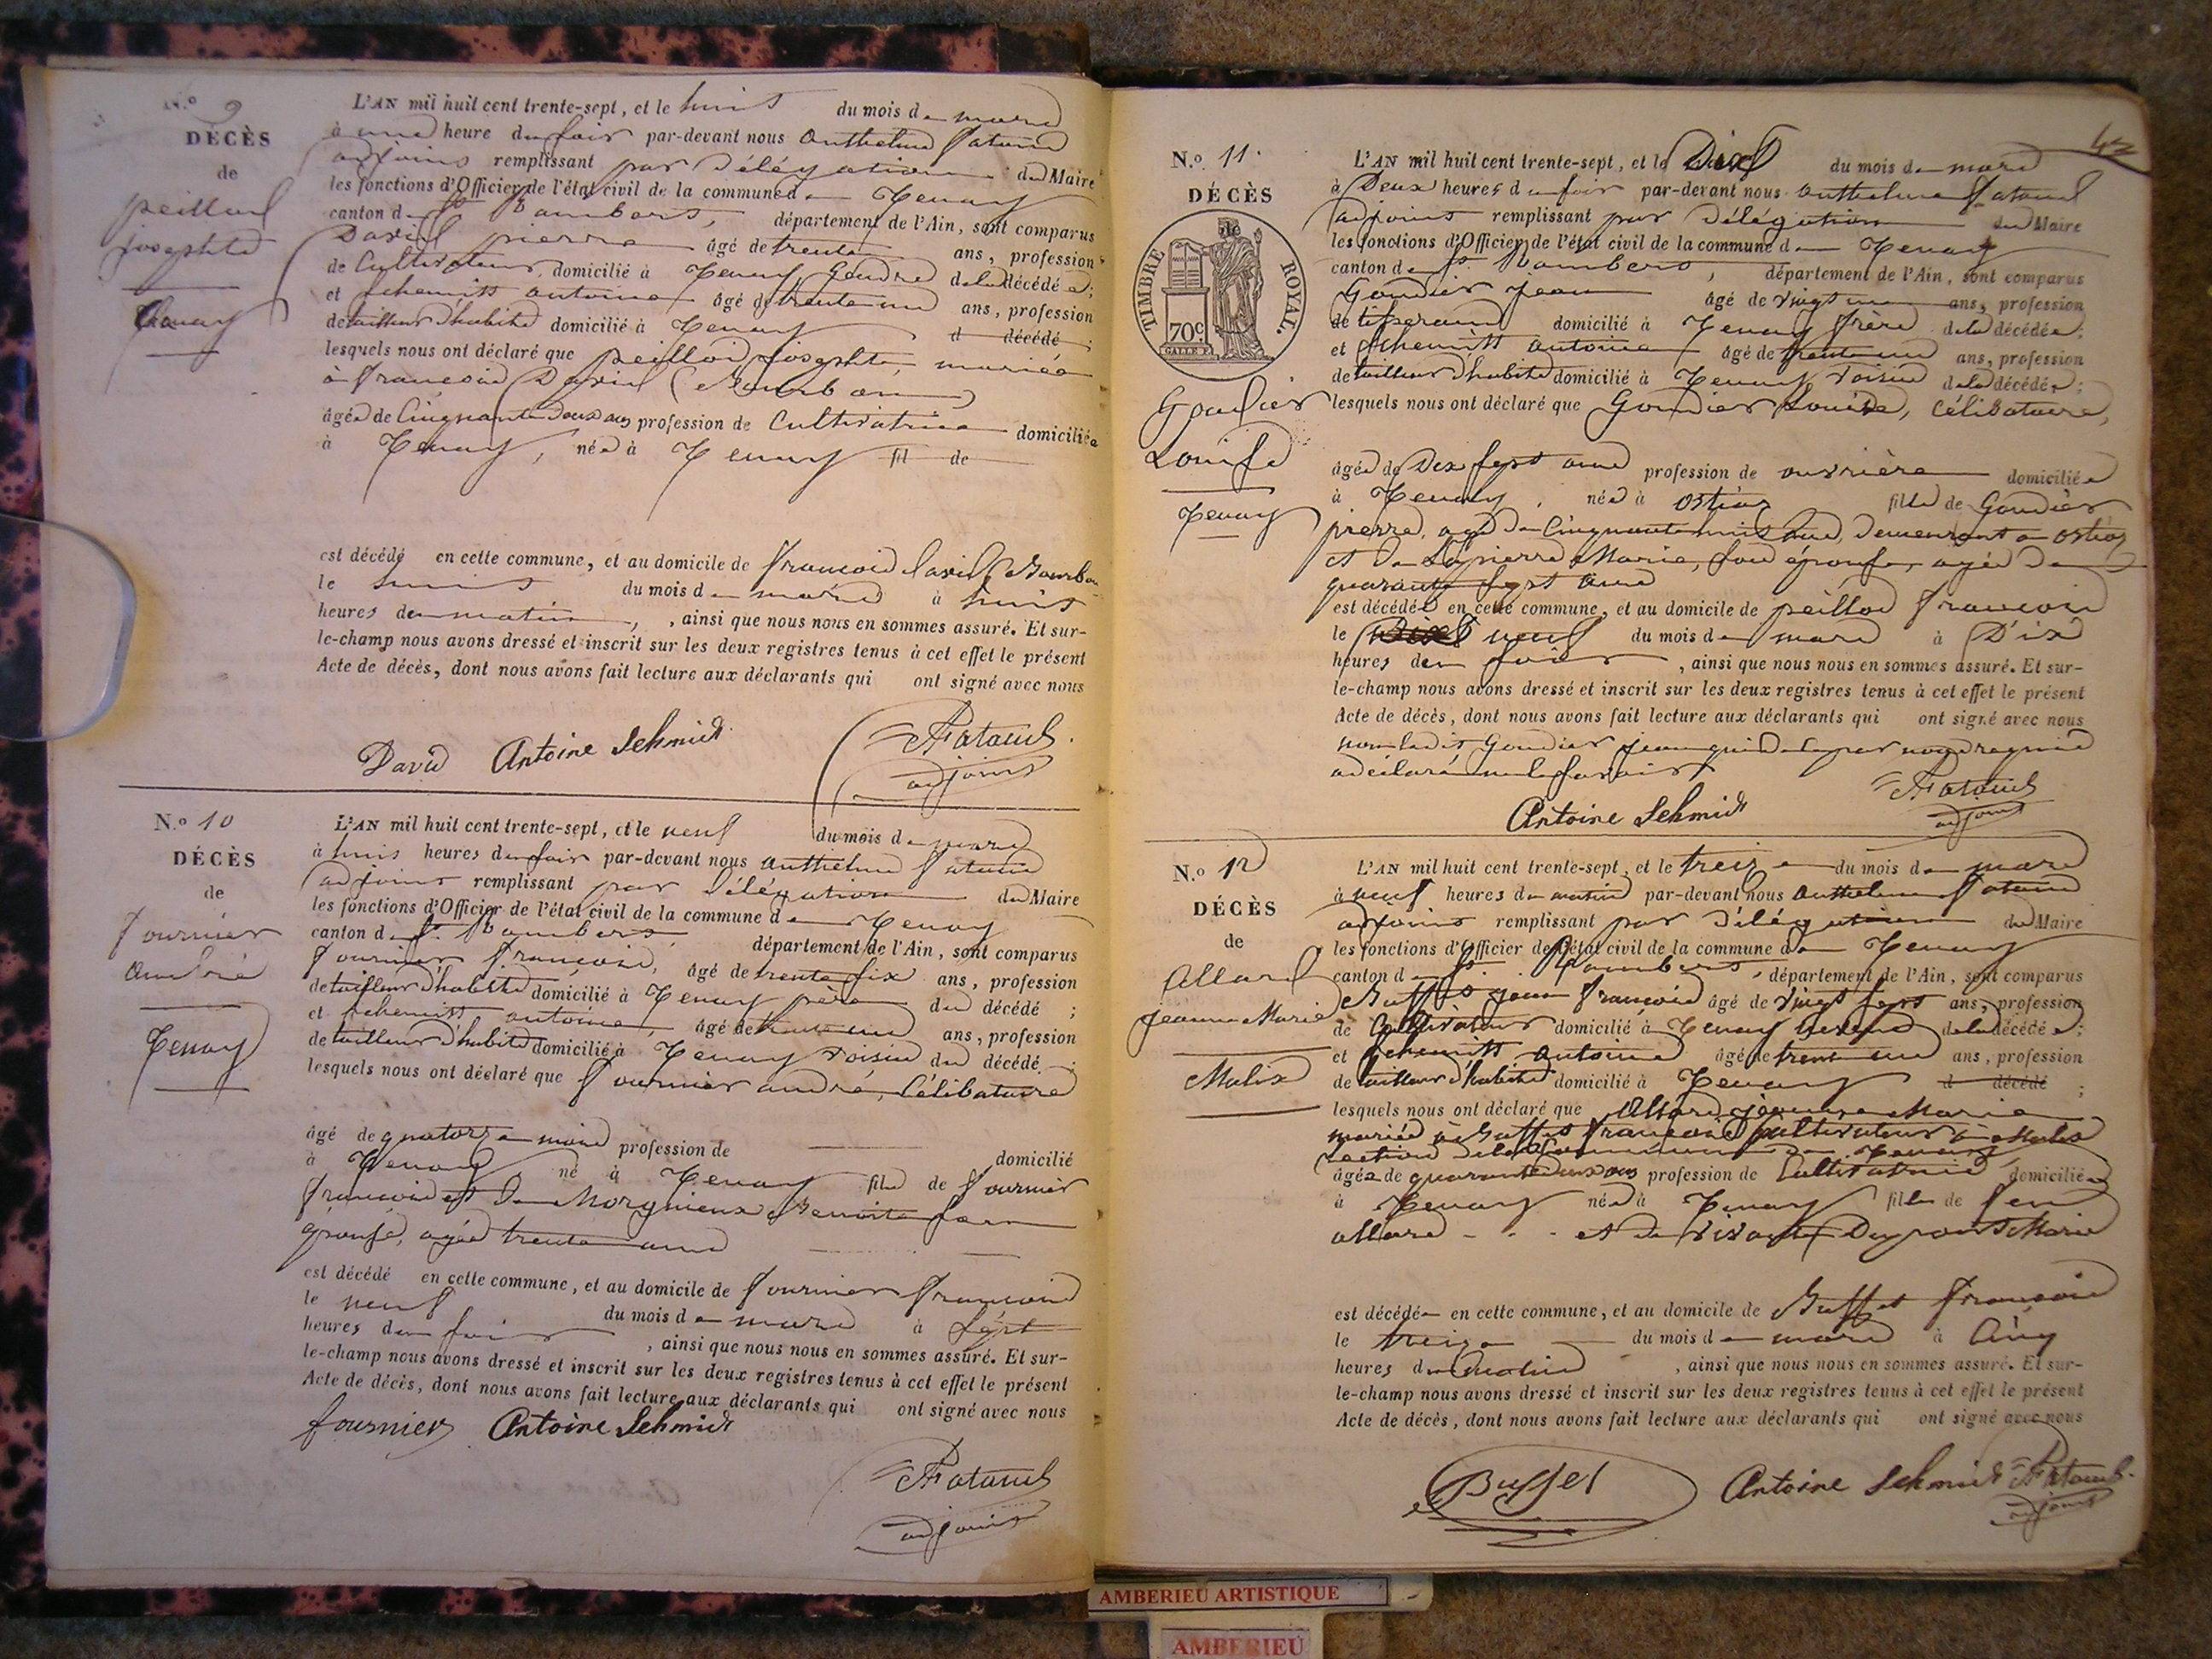 N.o 9
DÉCÈS
de
peilloud
josephte
Tenay
L'AN mil huit cent trente-sept, et le huit du mois de mars
à une heure du soir par-devant nous Anthelme
adjoint remplissant par Délégation du Maire
les fonctions d'Officier de l'état civil de la commune de Tenay
canton de St Rambert, département de l'Ain, sont comparus
David pierre âgé de trente ans, profession
de Cultivateur domicilié à Tenay Gendre de la décédée;
et schemitt antoine âgé de trente un ans, profession
de tailleur d'habits domicilié à Tenay d décédé
lesquels nous ont déclaré que peilloud josephte, mariée
à françois David
âgée de Cinquante deux ans profession de Cultivatrice domiciliée
à Tenay, née à Tenay fil de
est décédé en cette commune, et au domicile de françois david
le huit du mois de mars à huit
heures du matin, ainsi que nous nous en sommes assuré. Et sur-
le-champ nous avons dressé et inscrit sur les deux registres tenus à cet effet le présent
Acte de décès, dont nous avons fait lecture aux déclarants qui ont signé avec nous
David Antoine Schmidt
adjoint
N.o 10
DÉCÈS
de
fournier
André
Tenay
L'AN mil huit cent trente-sept, et le neuf du mois de mars
à huit heures du soir par-devant nous anthelme
adjoint remplissant par Délégation du Maire
les fonctions d'Officier de l'état civil de la commune de Tenay
canton de St Rambert département de l'Ain, sont comparus
fournier françois, âgé de trente six ans, profession
de tailleur d'habits domicilié à Tenay père du décédé;
et schemitt antoine, âgé de trente un ans, profession
de tailleur d'habits domicilié à Tenay voisin du décédé;
lesquels nous ont déclaré que fournier andré, Célibataire
âgé de quatorze mois profession de domicilié
à Tenay, né à Tenay fils de fournier
françois et de Morgnieux Benoite son
épouse, agée trente ans
est décédé en cette commune, et au domicile de fournier françois
le neuf du mois de mars à Sept
heures du soir, ainsi que nous nous en sommes assuré. Et sur-
le-champ nous avons dressé et inscrit sur les deux registres tenus à cet effet le présent
Acte de décès, dont nous avons fait lecture aux déclarants qui ont signé avec nous
fournier Antoine Schmidt
adjoint
42
N.o 11
DÉCÈS
de
TIMBRE ROYAL.
70c
Goudier
Louise
Tenay
L'AN mil huit cent trente-sept, et le Dix du mois de mars
à Deux heures du soir par-devant nous anthelme
adjoint remplissant par Délégation du Maire
les fonctions d'Officier de l'état civil de la commune de Tenay
canton de St Rambert, département de l'Ain, sont comparus
Goudier Jean âgé de vingt un ans, profession
de tisserand domicilié à Tenay frère de la décédée;
et schemitt antoine âgé de trente un ans, profession
de tailleur d'habits domicilié à Tenay voisin de la décédée;
lesquels nous ont déclaré que Goudier Louise, Célibataire,
âgée de Dix sept ans profession de ouvrière domiciliée
à Tenay, née à ostiaz fille de Goudier
pierre, agé de Cinquante huit ans, Demeurant a ostiaz
et de Lapierre Marie, son épouse, agée de
quarante sept ans
est décédée en cette commune, et au domicile de peilloud françois
le neuf du mois de mars à Dix
heures du soir, ainsi que nous nous en sommes assuré. Et sur-
le-champ nous avons dressé et inscrit sur les deux registres tenus à cet effet le présent
Acte de décès, dont nous avons fait lecture aux déclarants qui ont signé avec nous
non ledit Goudier jean qui de ce par nous requis
a déclaré ne le savoir
Antoine Schmidt
adjoint
N.o 12
DÉCÈS
de
Allard
jeanne Marie
Malix
L'AN mil huit cent trente-sept, et le treize du mois de mars
à neuf heures du matin par-devant nous anthelme
adjoint remplissant par Délégation du Maire
les fonctions d'Officier de l'état civil de la commune de Tenay
canton de St Rambert, département de l'Ain, sont comparus
Buffet jean françois âgé de vingt sept ans, profession
de Cultivateur domicilié à Tenay de la décédée;
et schemitt antoine âgé de trente un ans, profession
de tailleur d'habits domicilié à Tenay d décédé;
lesquels nous ont déclaré que Allard jeanne Marie
mariée à Buffet françois Cultivateur à Malix
section de la Commune de Tenay,
âgée de quarante deux ans profession de Cultivatrice domiciliée
à Tenay née à Tenay fille de feu
allard et de vivante Marie
est décédée en cette commune, et au domicile de Buffet françois
le treize du mois de mars à Cinq
heures du matin, ainsi que nous nous en sommes assuré. Et sur-
le-champ nous avons dressé et inscrit sur les deux registres tenus à cet effet le présent
Acte de décès, dont nous avons fait lecture aux déclarants qui ont signé avec nous
Buffet Antoine Schmidt
adjoint
AMBERIEU ARTISTIQUE
AMBERIEU